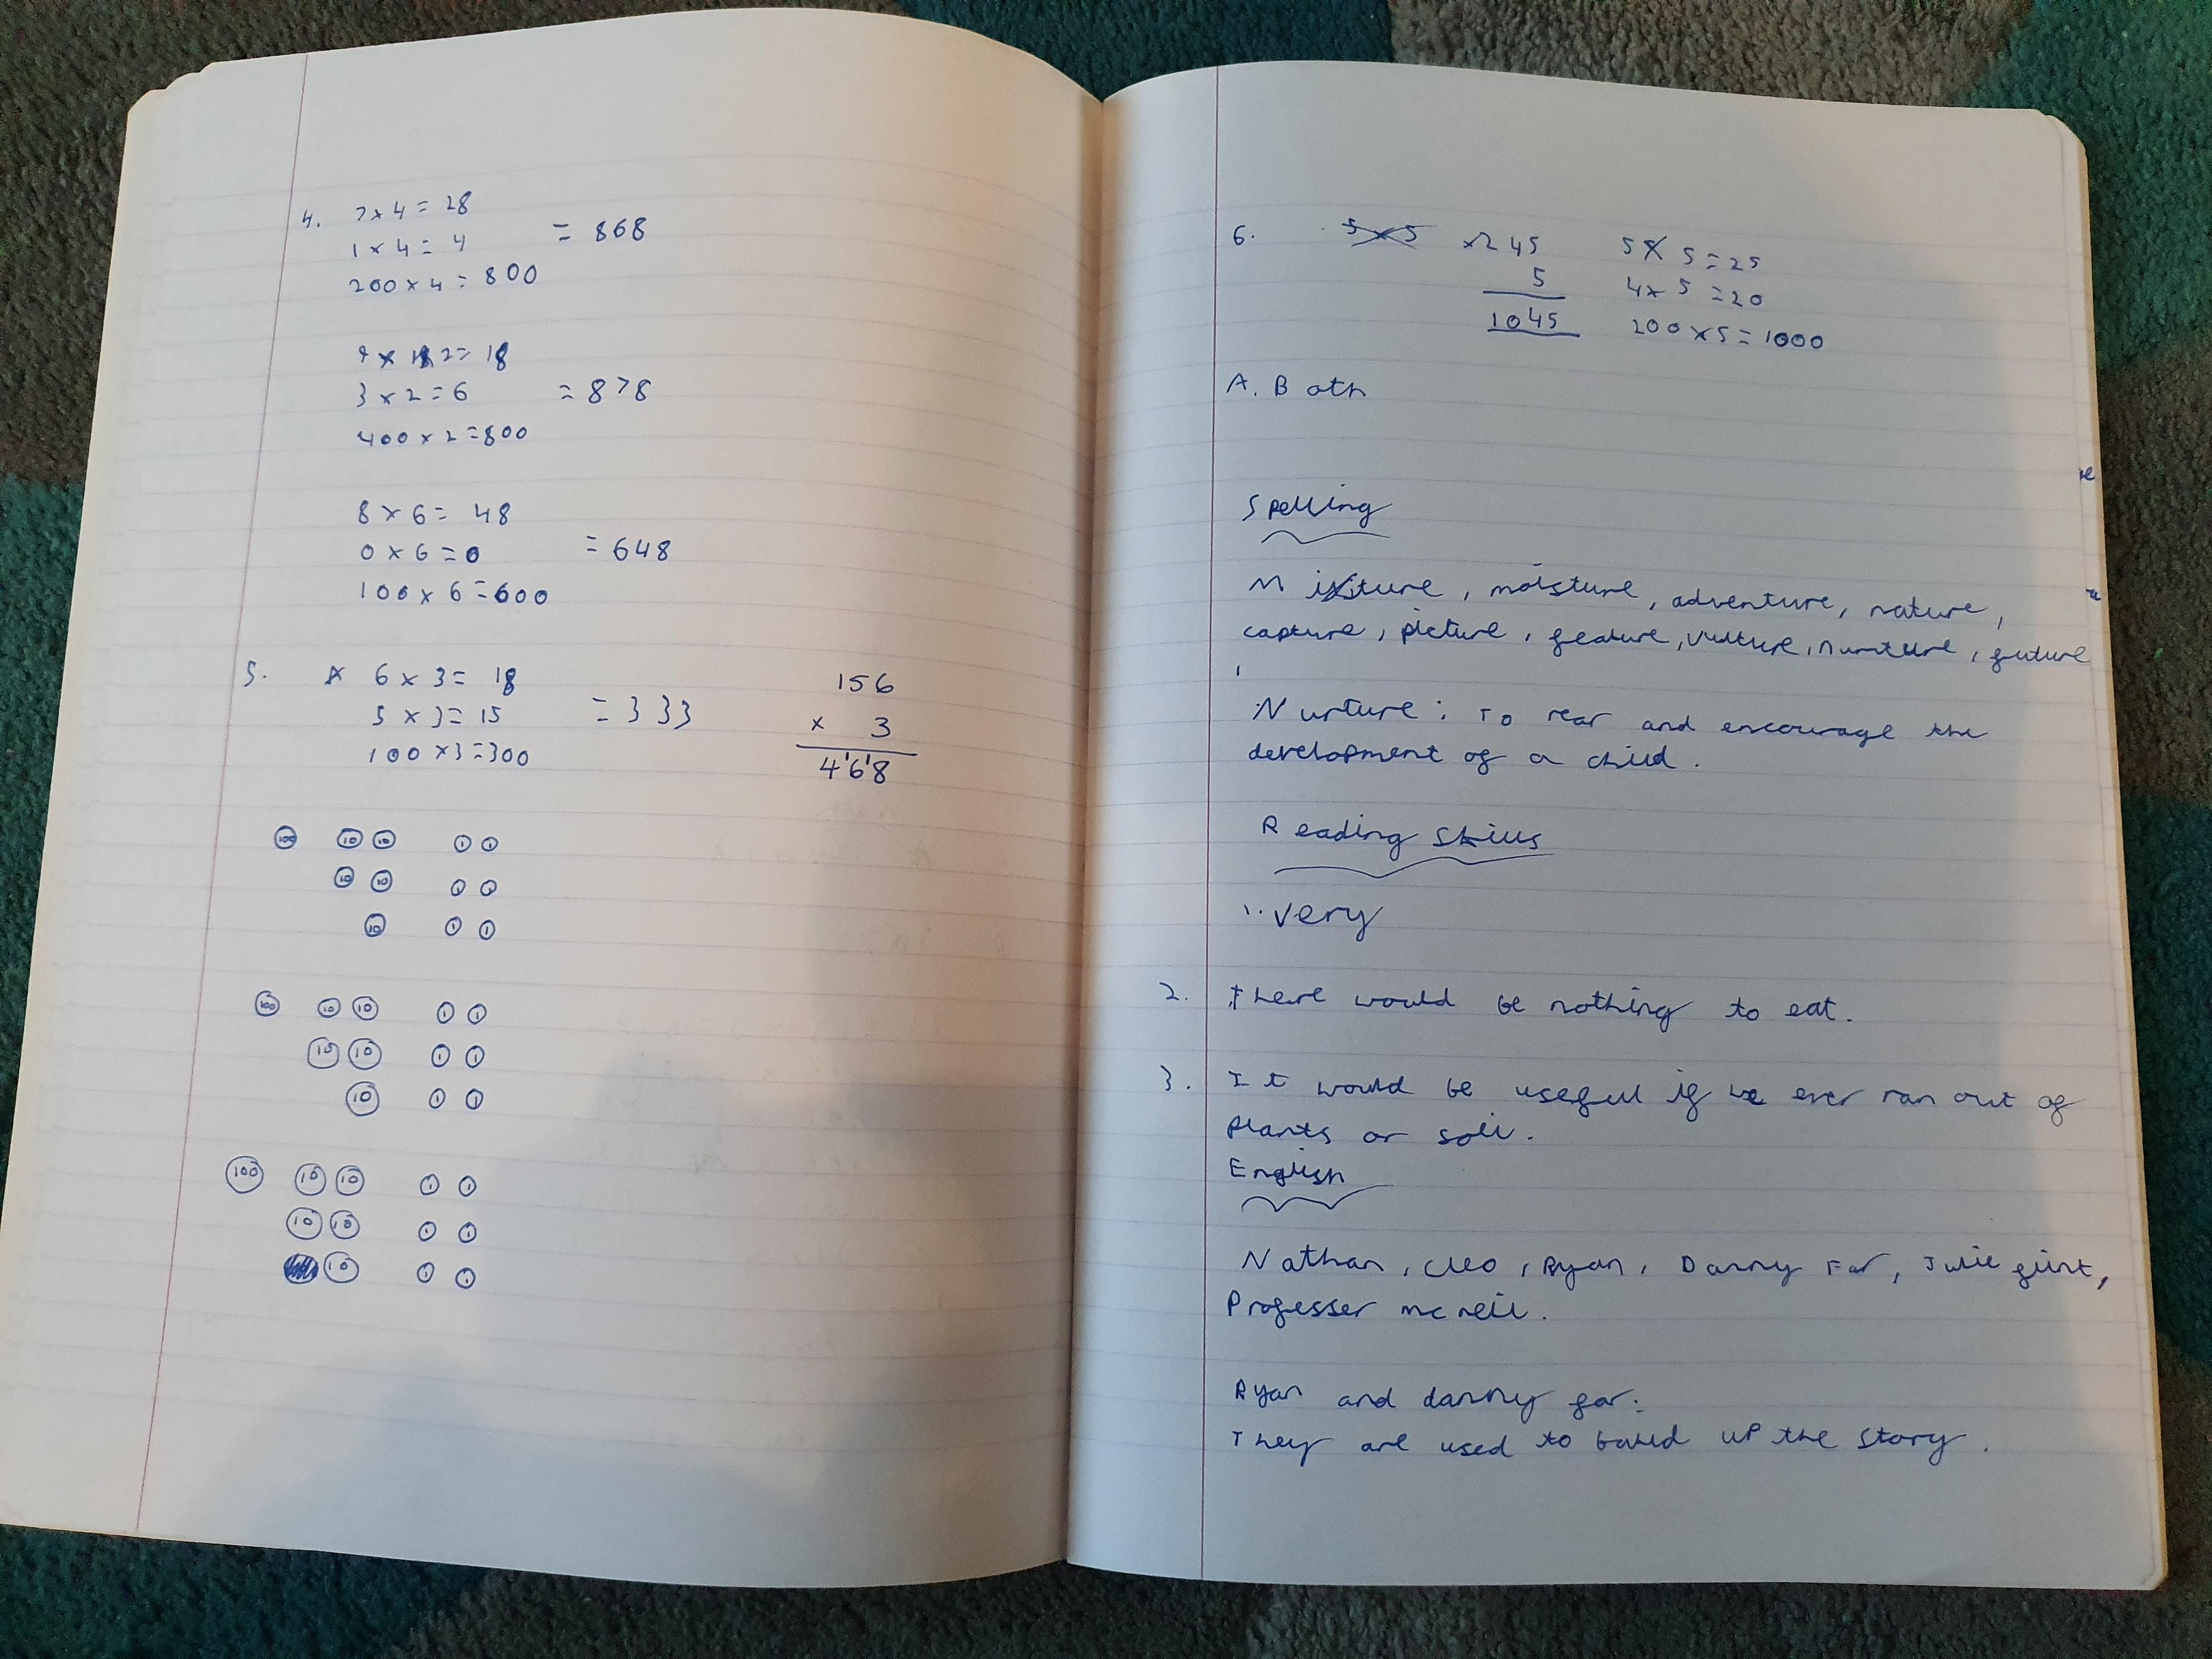 4. 7 x 4 = 28
1 x 4 = 4 = 868
200 x 4 = 800
9 x 2 = 18
3 x 2 = 6 = 878
400 x 2 = 800
8 x 6 = 48
0 x 6 = 0 = 648
100 x 6 = 600
5. 6 x 3 = 18
5 x 3 = 15 = 333
100 x 3 = 300
156
x 3
468
100 10 10 1 1
10 10 1 1
10 1 1
100 10 10 1 1
10 10 1 1
10 1 1
100 10 10 1 1
10 10 1 1
10 1 1
6. 5 x 5 x 245 5 x 5 = 25
5 4 x 5 = 20
1045 200 x 5 = 1000
A. Both
Spelling
Mixture, moisture, adventure, nature,
capture, picture, feature, vulture, nurture, future
Nurture: To rear and encourage the
development of a child.
Reading Skills
1. very
2. there would be nothing to eat.
3. It would be useful if we ever ran out of
plants or soil.
English
Nathan, Cleo, Ryan, Danny Far, Julie flint,
Professer mcneil.
Ryan and danny far:
They are used to build up the story.